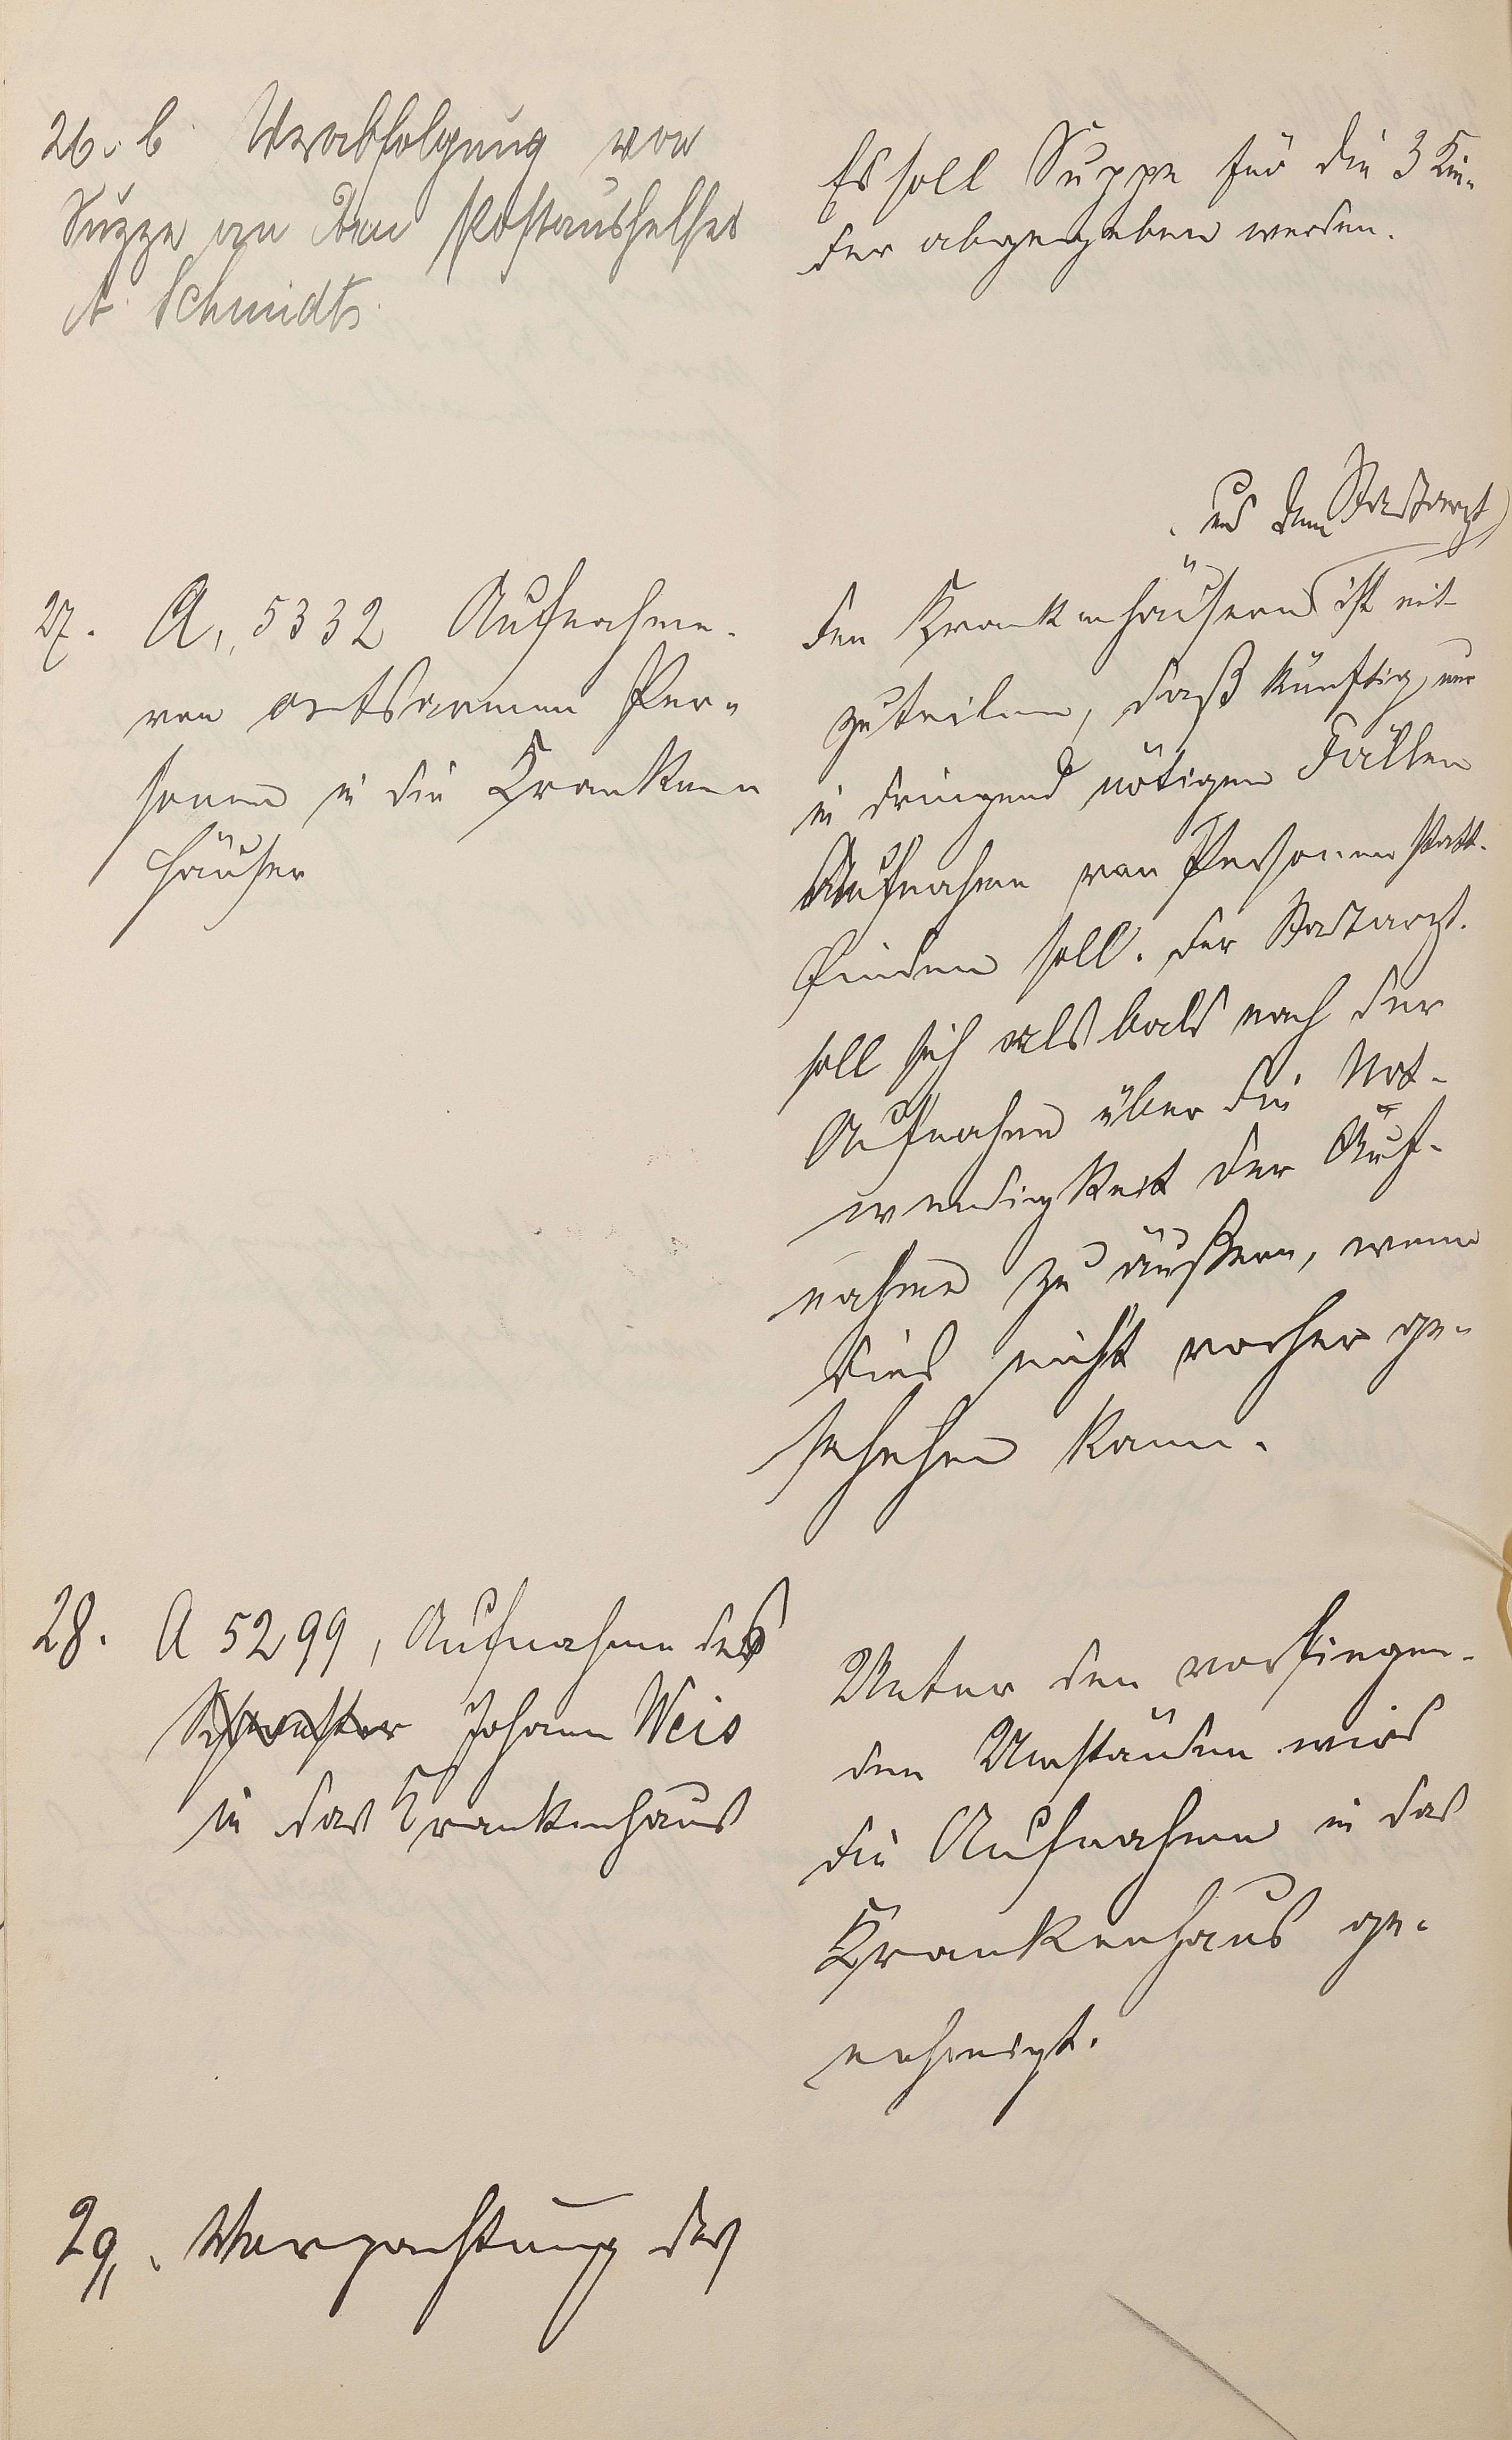 26. b Verabfolgung von
Suppe an den Postaushelfer
A. Schmidt.
Es soll Suppe für die 3 Kin-
der abgegeben werden.
27. A. 5332 Aufnahme
von ortsarmen Per-
sonen in die Kranken
häuser
und dem Stadtarzt
Den Krankenhäusern ist mit-
zuteilen, daß künftig nur
in dringend nötigen Fällen
Aufnahme von Personen statt-
finden soll. Der Stadtarzt.
soll sich alsbald nach der
Aufnahme über die Not-
wendigkeit der Auf-
nahme zu äußern, wenn
dies nicht vorher ge-
schehen kann.
28. A 5299, Aufnahme des
Schreiner Johann Weis
in das Krankenhaus
Unter den vorliegen-
den Umständen wird
die Aufnahme in das
Krankenhaus ge-
nehmigt.
29. Verpachtung des